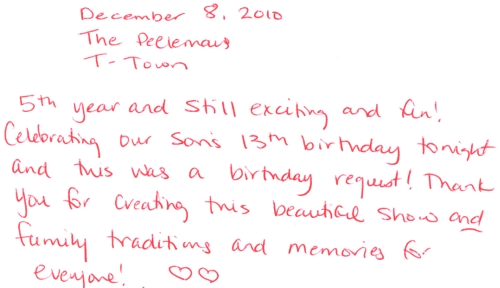 December 8, 2010
The
T-Town
5th year and still exciting and fun!
Celebrating our son's 13th birthday tonight
and this was a birthday request! Thank
you for creating this beautiful show and
family traditions and memories for
everyone! ♡♡